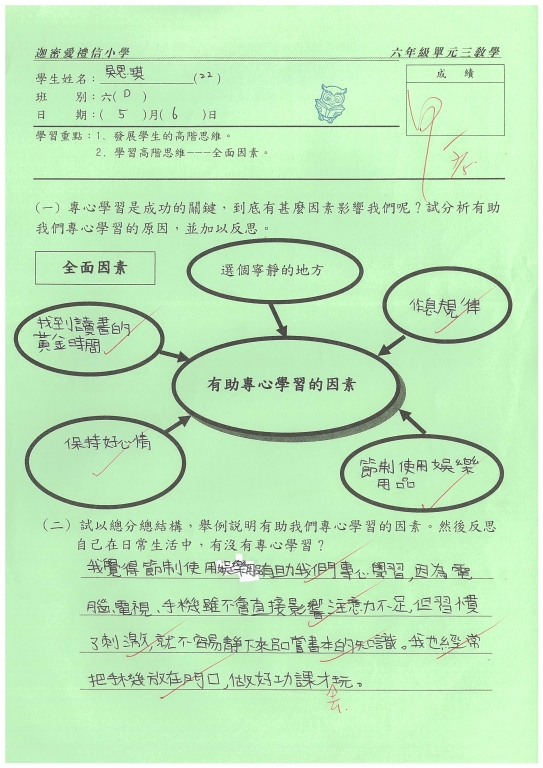 迦密愛禮信小學 六年級單元三教學
學生姓名：吳思琪(22)
成 績
班 別：六( D )
日 期：( 5 )月( 6 )日
學習重點：1. 發展學生的高階思維。
2. 學習高階思維---全面因素。
(一) 專心學習是成功的關鍵，到底有甚麼因素影響我們呢？試分析有助
我們專心學習的原因，並加以反思。
全面因素
選個寧靜的地方
作息規律
找到讀書的
黃金時間
有助專心學習的因素
保持好心情
節制使用娛樂
用品
(二) 試以總分總結構，舉例說明有助我們專心學習的因素。然後反思
自己在日常生活中，有沒有專心學習？
我覺得節制使用娛樂用品有助我們專心學習,因為電
腦、電視、手機雖不會直接影響注意力不足,但習慣
了刺激,就不容易靜下來品嘗書本的知識。我也經常
把手機放在門口,做好功課才玩。